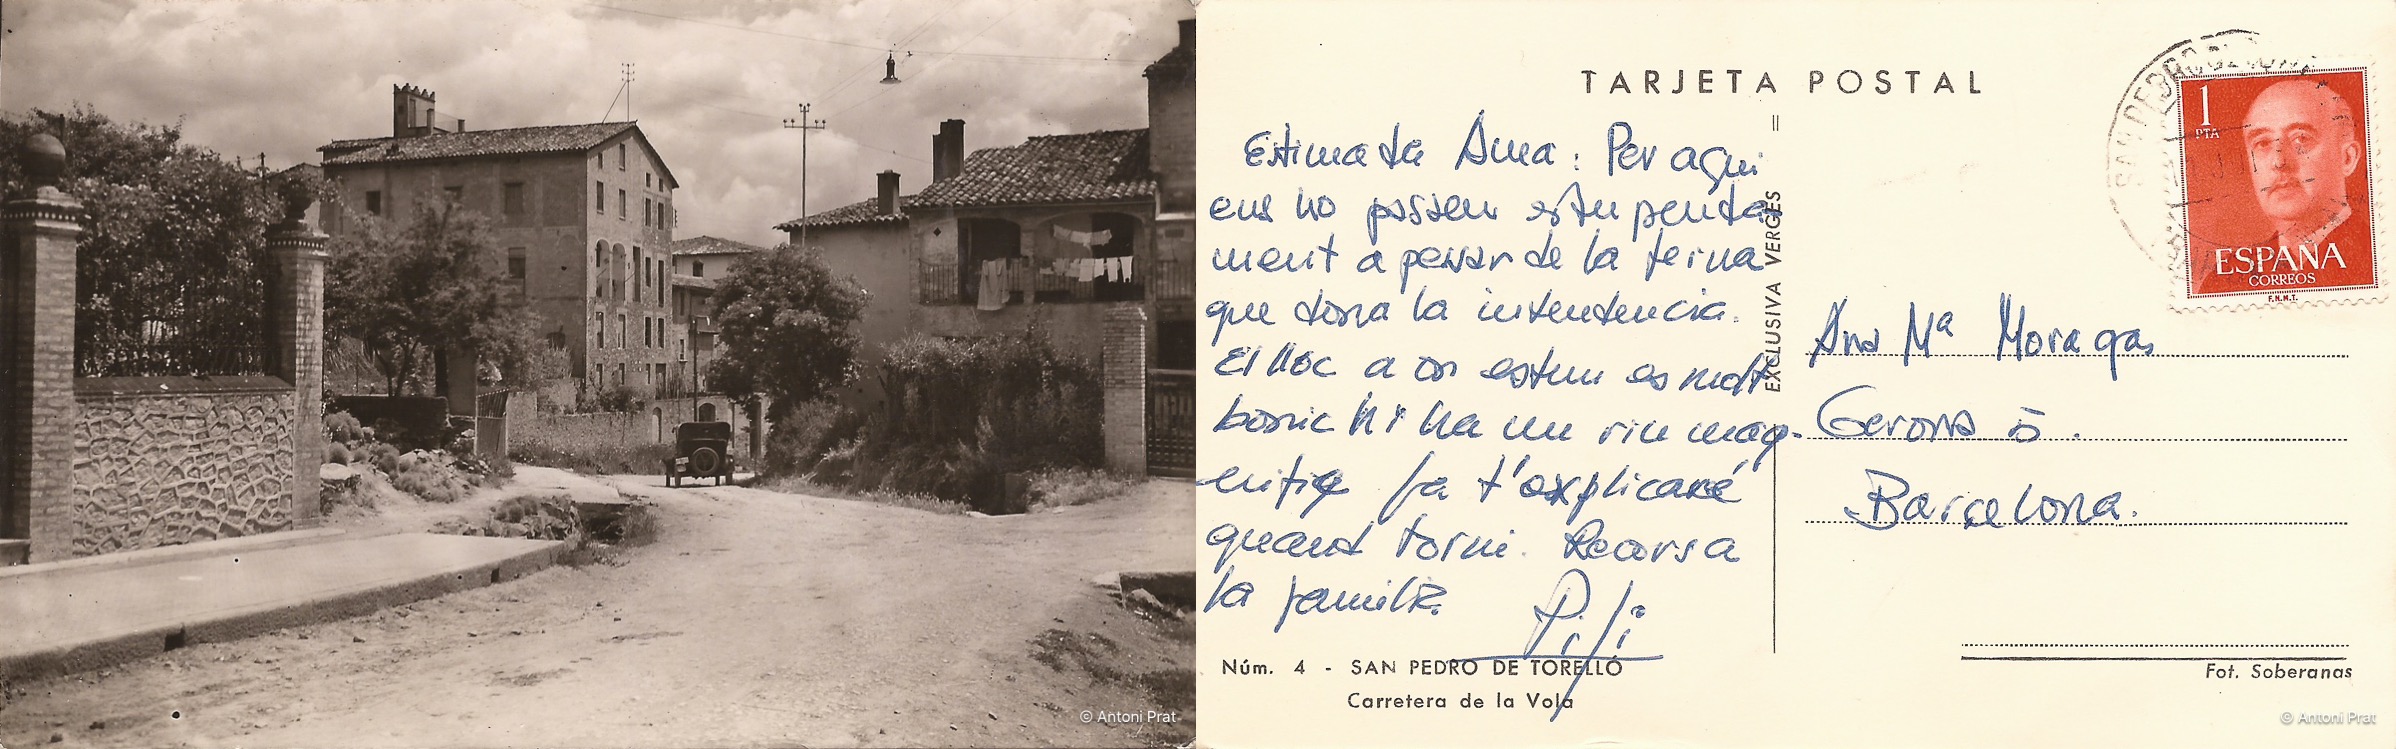 © Antoni Prat
TARJETA POSTAL
Estimada Anna: Per aqui
ens ho passem estupenda
ment a pesar de la feina
que dona la intendencia.
El lloc a on estem es molt
bonic hi ha un riu mag-
nifig ja t'explicaré
quand torni. Recors a
la familia.
Pili
Núm. 4 - SAN PEDRO DE TORELLÓ
Carretera de la Vola
EXCLUSIVA VERGÉS
1
PTA
ESPAÑA
CORREOS
F.N.M.T.
Ana Mª Moragas
Gerona 5.
Barcelona.
Fot. Soberanas
© Antoni Prat